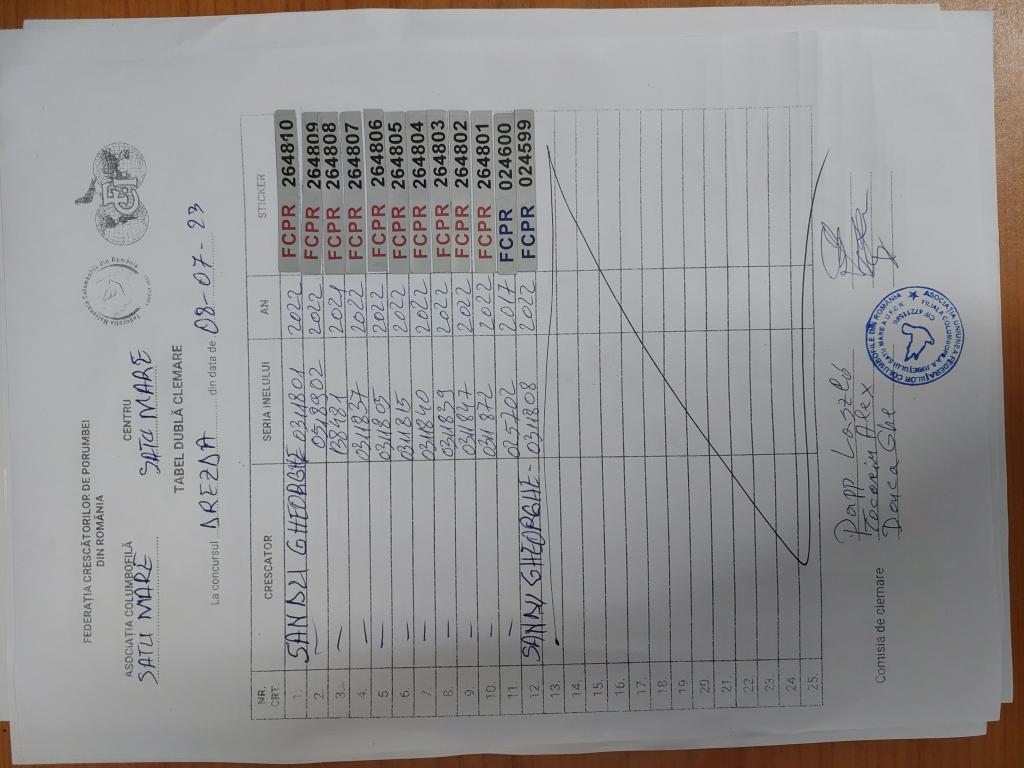 FEDERAȚIA CRESCĂTORILOR DE PORUMBEI
DIN ROMÂNIA
ASOCIAȚIA COLUMBOFILĂ CENTRU
SATU MARE SATU MARE
TABEL DUBLĂ CLEMARE
La concursul DREZDA din data de 08-07-23
NR. CRT. CRESCATOR SERIA INELULUI AN STICKER
1. SANDU GHEORGHE 0311801 2022 FCPR 264810
2. — 058902 2022 FCPR 264809
3. — 108481 2021 FCPR 264808
4. — 0311837 2022 FCPR 264807
5. — 0311805 2022 FCPR 264806
6. — 0311815 2022 FCPR 264805
7. — 0311840 2022 FCPR 264804
8. — 0311839 2022 FCPR 264803
9. — 0311847 2022 FCPR 264802
10. — 0311872 2022 FCPR 264801
11. — 025702 2017 FCPR 024600
12. SANDU GHEORGHE - 0311808 2022 FCPR 024599
13.
14.
15.
16.
17.
18.
19.
20.
21.
22.
23.
24.
25.
Comisia de clemare
Papp Laszló
Alex
Ghe